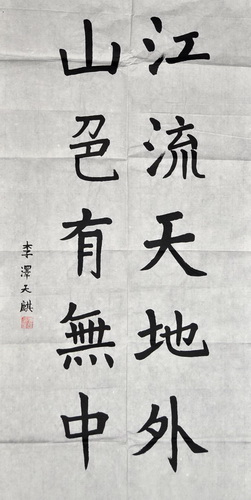 江流天地外
山色有無中
李澤天麒